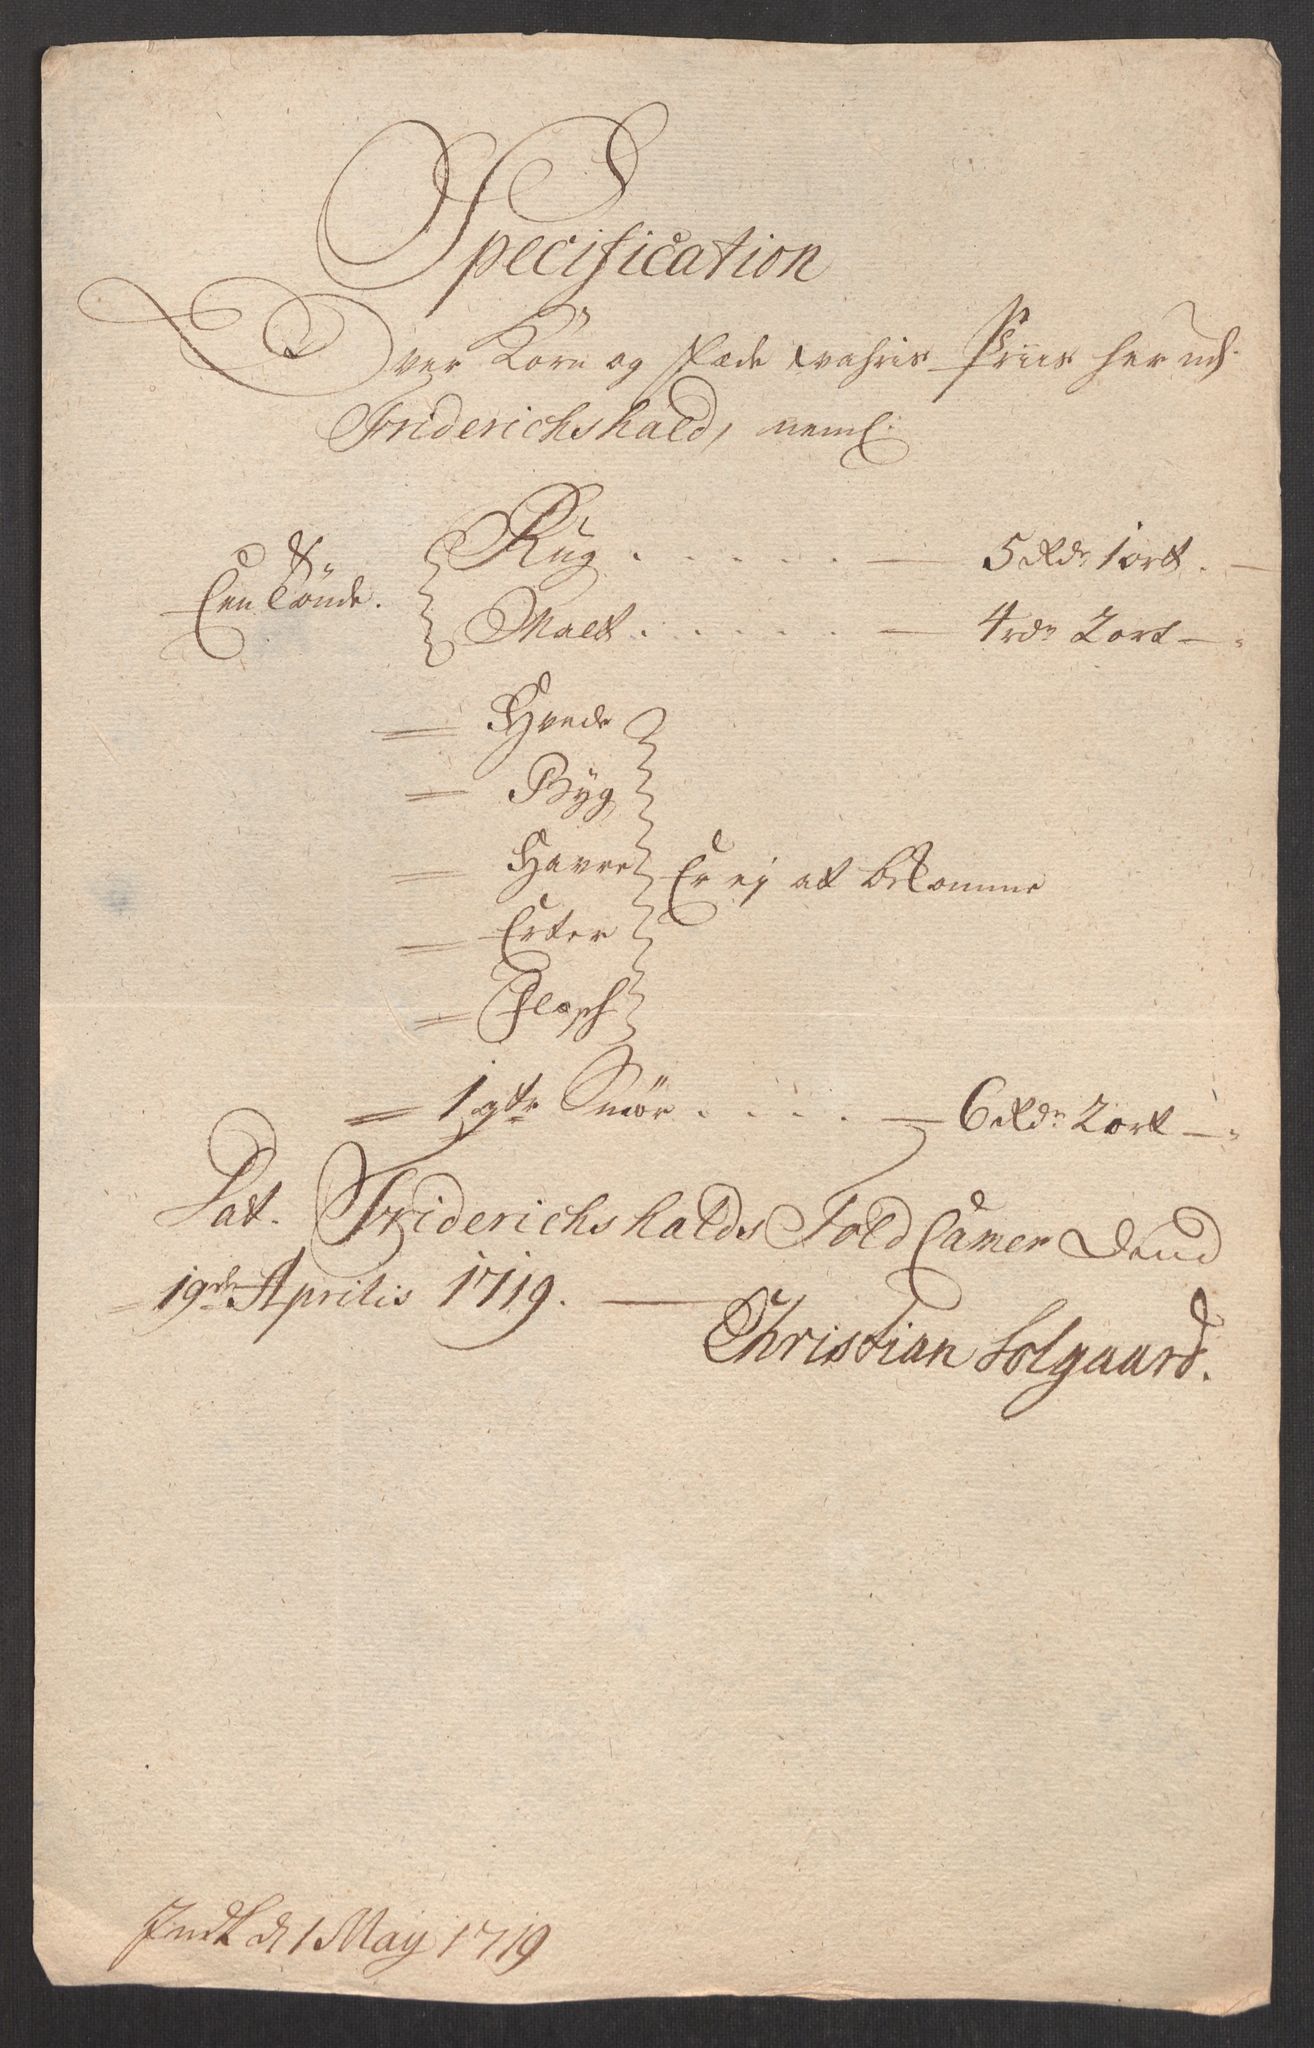 Specification
Over Korn og fæde wahris Priis her udj
Friderichshald, neml:
Een Tønde. Rug . . . . . — 5 Rdr 1 ort . —
Malt . . . . . — 4 rdr 2 ort — "
= Hvede
= Byg
= Havre Er ej at bekomme
= Erter
= Flesch
= 1 qtr Smør . . . . — 6 Rdr 2 ort — "
Dat. Friderichshalds Told Camer Dend
19de Aprilis 1719. —
Christian Solgaard.
Indk d 1 May 1719